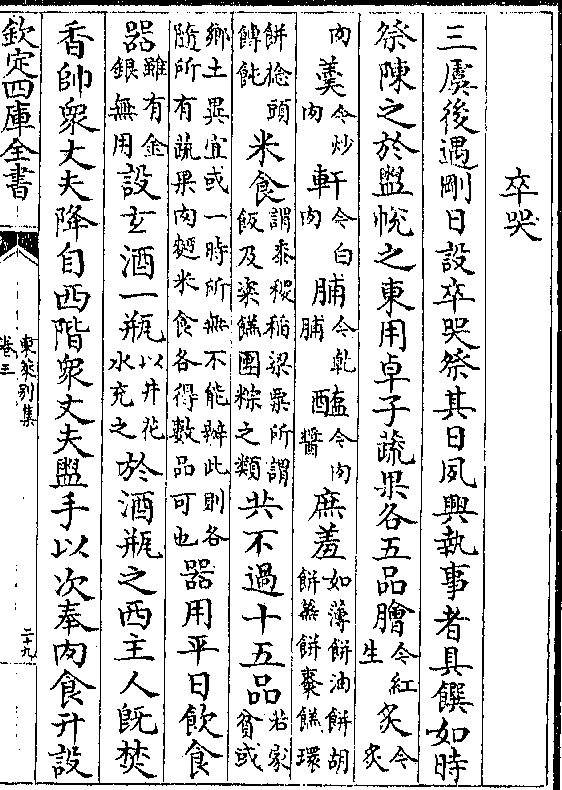 卒哭
三虞後遇剛日設卒哭祭其日夙興執事者具饌如時
祭陳之於盥帨之東用卓子蔬果各五品膾今紅生炙今炙
肉羮今炒肉軒今白肉脯今乾脯醢今肉醬庶羞如薄餅油餅胡餅蒸餅棗餻環
餅捻頭餺飥米食謂黍稷稻粱粟所謂飯及粢餻團粽之類共不過十五品若家貧或
鄉土異宜或一時所無不能辦此則各隨所有蔬果肉麵米食各得數品可也器用平日飲食
器雖有金銀無用設玄酒一瓶以井花水充之於酒瓶之西主人既焚
香帥衆丈夫降自西階衆丈夫盥手以次奉肉食升設
欽定四庫全書
東萊別集
卷三
二十九